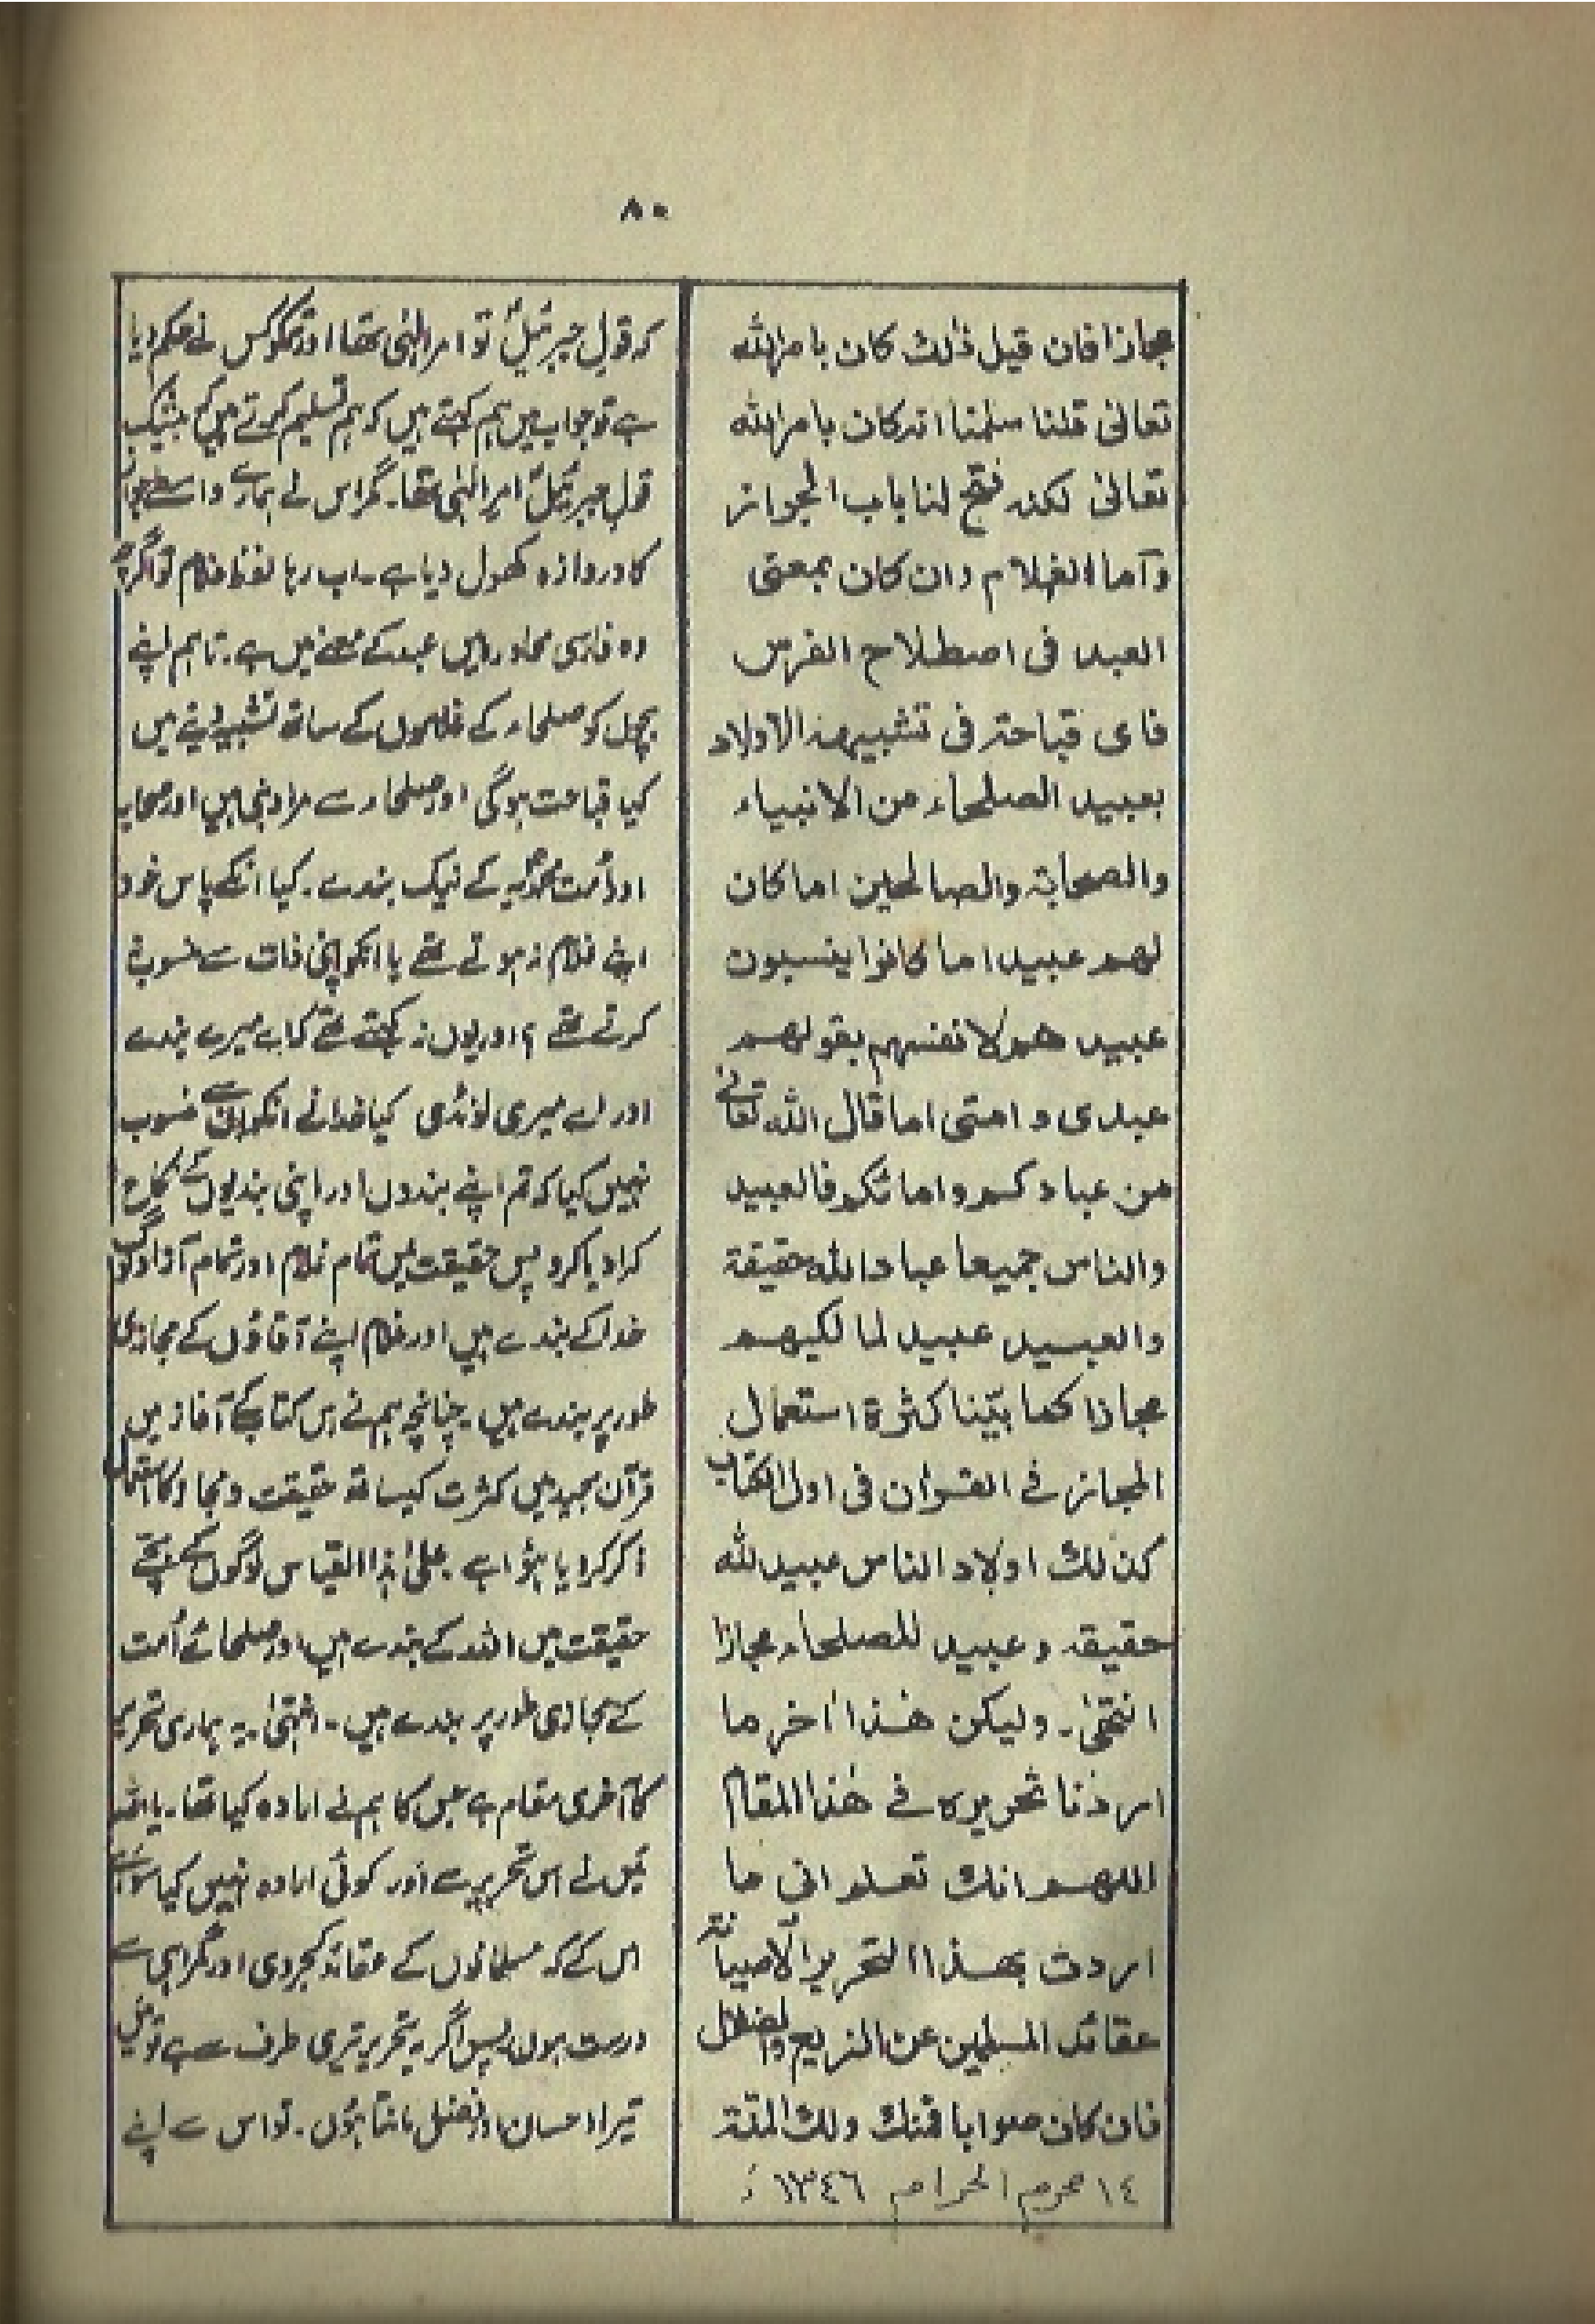 ۸۰
مجازا فان قیل ذلك كان بامرالله
تعالیٰ قلنا سلمنا انه كان بامرالله
تعالیٰ لكنه فتح لنا باب الجواز
وآما الغلام وان كان بمعنی
العبد فی اصطلاح الفرس
فای قباحة فی تشبیه الاولاد
بعبید الصلحاء من الانبیاء
والصحابة والصالحین اما كان
لهم عبید اما كانوا ینسبون
عبید هم لانفسهم بقولهم
عبدی و امتی اما قال الله تعالےٰ
من عبادكم وامائكم فالعبید
والناس جمیعا عبادالله حقیقة
والعبید عبید لمالكیهم
مجازا كما بیّنا كثرة استعمال
المجاز فے القرأن فی اول الكتاب
كذلك اولاد الناس عبید لله
حقیقة وعبید للصلحاء مجازا
انتهٰی۔ ولیكن هٰذا اٰخر ما
اردنا تحریره فے هٰذا المقام
اللهم انك تعلم انی ما
اردت بهذا التحریر الّا صیانة
عقائد المسلمین عن الزیغ والضلال
فان كان صوابا فمنك ولك المنّة
١٤ محرم الحرام ١٣٤٦
کہ قول جبرئیلؑ تو امر الٰہی تھا اور تمکو کس نے حکم دیا
ہے تو جواب میں ہم کہتے ہیں کہ ہم تسلیم کرتے ہیں کہ بیشک
قول جبرئیلؑ امر الٰہی تھا۔ مگر اس نے ہمارے واسطے جواز
کا دروازہ کھول دیا ہے۔ اب رہا لفظ غلام تو اگرچہ
وہ فارسی محاورہ میں عبد کے معنے میں ہے۔ تاہم اپنے
بچوں کو صلحاء کے غلاموں کے ساتھ تشبیہ دینے میں
کیا قباحت ہوگی اور صلحاء سے مراد نبی ہیں اور صحابہ
اور اُمت محمدیہ کے نیک بندے۔ کیا انکے پاس خود
اپنے غلام نہ ہوتے تھے یا انکو اپنی ذات سے منسوب نہ
کرتے تھے ؟ اور یوں نہ کہتے تھے کہ اے میرے بندے
اور اے میری لونڈی کیا خدا نے انکو اپنی سے منسوب
نہیں کیا کہ تم اپنے بندوں اور اپنی بندیوں کے نکاح
کرا دیا کرو پس حقیقت میں تمام غلام اور تمام آزاد لوگ
خدا کے بندے ہیں اور غلام اپنے آقاؤں کے مجازی
طور پر بندے ہیں۔ چنانچہ ہم نے اس کتاب کے آغاز میں
قرآن مجید میں کثرت کیساتھ حقیقت و مجاز کا استعمال
ذکر کر دیا ہؤا ہے۔ علیٰ ہذا القیاس لوگوں کے بچے
حقیقت میں اللہ کے بندے ہیں اور صلحائے اُمت
کے مجازی طور پر بندے ہیں۔ انتہیٰ۔ یہ ہماری تحریر
کا آخری مقام ہے جس کا ہم نے ارادہ کیا تھا۔ یا اللہ
مَیں نے اس تحریر سے اور کوئی ارادہ نہیں کیا سوائے
اس کے کہ مسلمانوں کے عقائد کجروی اور گمراہی سے
درست ہوں۔ پس اگر یہ تحریر تیری طرف سے ہے تو میں
تیرا احسان اور فضل مانتا ہوں۔ تو اس سے اپنے